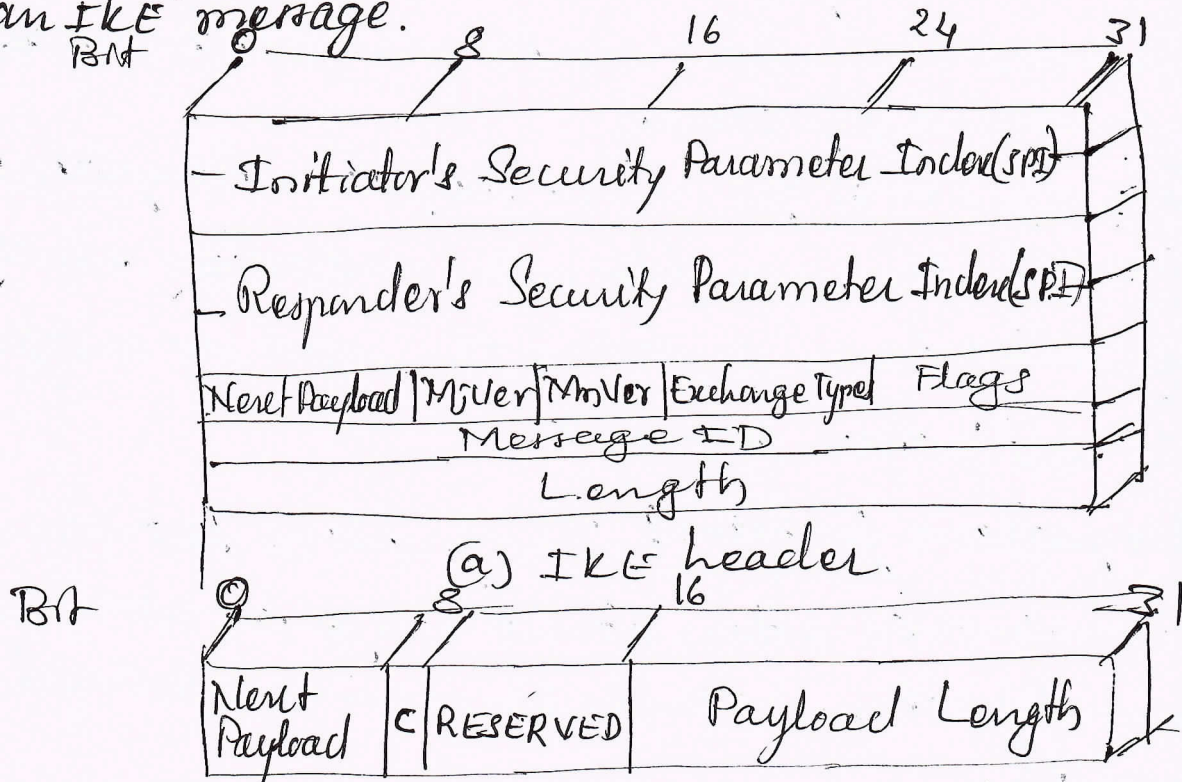 an IKE message.
Bit 0 8 16 24 31
Initiator's Security Parameter Index(SPI)
Responder's Security Parameter Index(SPI)
Next Payload MjVer MnVer Exchange Type Flags
Message ID
Length
(a) IKE header.
Bit 0 8 16 31
Next Payload C RESERVED Payload Length